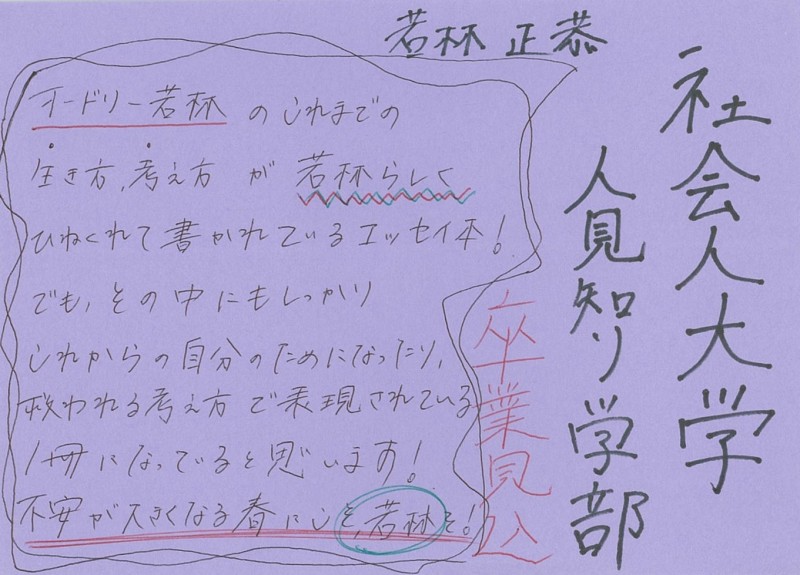 社会人大学
人見知り学部
卒業見込
若林 正恭
オードリー若林 のこれまでの
生き方、考え方 が 若林らしく
ひねくれて書かれているエッセイ本!
でも、その中にもしっかり
これからの自分のためになったり、
救われる考え方で表現されている
1冊になっていると思います!
不安が大きくなる春にこそ、若林を!